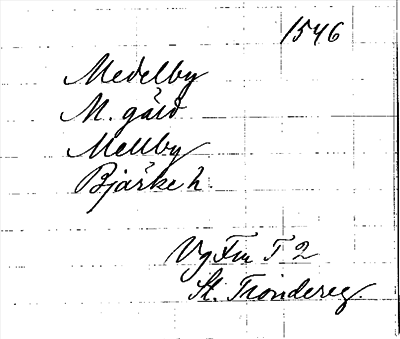 1546
Medelby
M. gärd
Mellby
Bjärke h.
Vg Fm T 2
St. Trondereg.